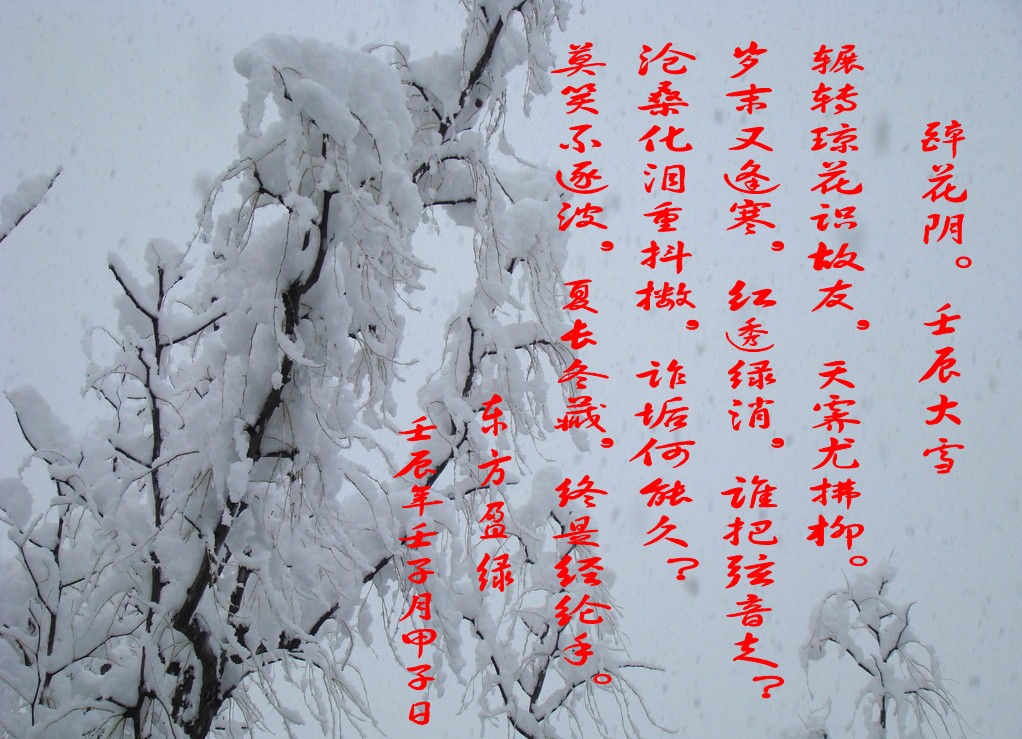 醉花阴。 壬辰大雪
辗转琼花识故友，天霁尤拂柳。
岁末又逢寒，红透绿消，谁把弦音走？
沧桑化泪重抖擞，诈垢何能久？
莫笑不逐波，夏长冬藏，终是经纶手。
东方盈绿
壬辰年壬子月甲子日